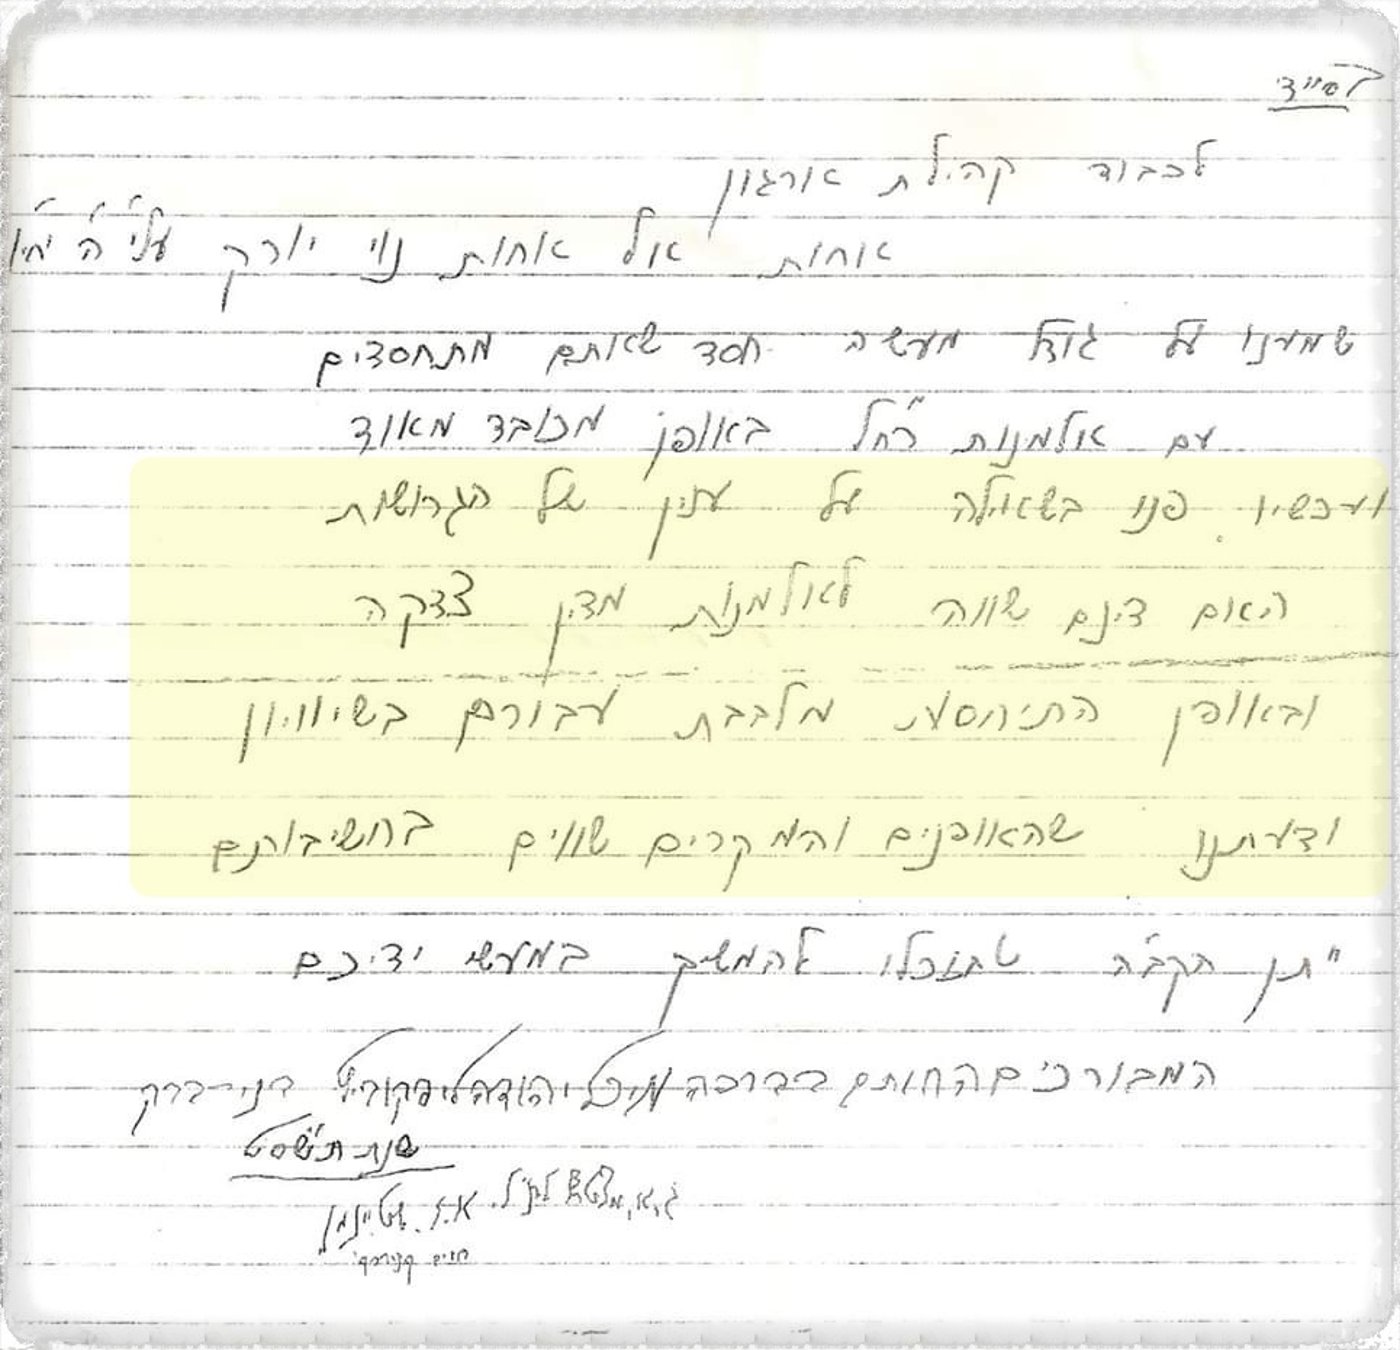 בסייד
לכבוד קהילת ארגון
אחות אל אחות נוי יורק עלי' ה' יחיו
שמענו על גודל מעשה חסד שאתם מתחסדים
עם אלמנות רח"ל באופן מכובד מאוד
ועכשיו פנו בשאילה על ענין של הגרושות
האם דינם שווה לאלמנות מדין צדקה
ובאופן התיחסות מלבבת עבורם בשיוויון
ודעתנו שהאופנים והמקרים שווים בחשיבותם
יתן הקב"ה שתוכלו להמשיך במעשי ידיכם
המבורכים החותם בברכה מיכל יהודה ליפקוביץ בני-ברק
שנת תשס"ט
א.ל. שטיינמן
חיים קניבסקי